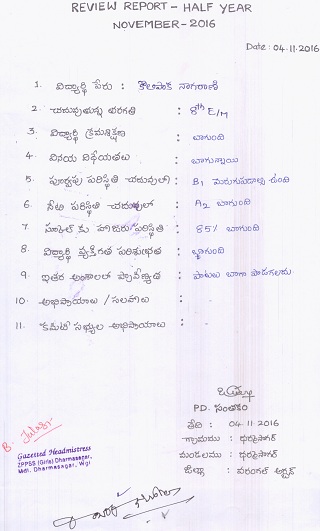 REVIEW REPORT - HALF YEAR
NOVEMBER-2016
Date: 04.11.2016
1. విద్యార్థి పేరు : కొలిపాక నాగరాణి
2. చదువుతున్న తరగతి : 8th E/M
3. విద్యార్థి క్రమశిక్షణ : బాగుంది
4. వినయ విధేయతలు : బాగున్నాయి
5. పూర్వపు పరిస్థితి చదువులో : B1 మెరుగుపడాల్సి ఉంది
6. నేటి పరిస్థితి చదువులో : A2 బాగుంది
7. స్కూల్ కు హాజరు పరిస్థితి : 85% బాగుంది
8. విద్యార్థి వ్యక్తిగత పరిశుభ్రత : బాగుంది
9. ఇతర అంశాలలో ప్రావీణ్యత : పాటలు బాగా పాడగలదు
10. అభిప్రాయాలు / సలహాలు :
11. కమిటి సభ్యుల అభిప్రాయాలు :
P.D. సంతకం
తేది : 04-11-2016
గ్రామము : ధర్మసాగర్
మండలము : ధర్మసాగర్
జిల్లా : వరంగల్ అర్బన్
Gazetted Headmistress
ZPPSS (Girls) Dharmasagar,
Mdl. Dharmasagar, Wgl